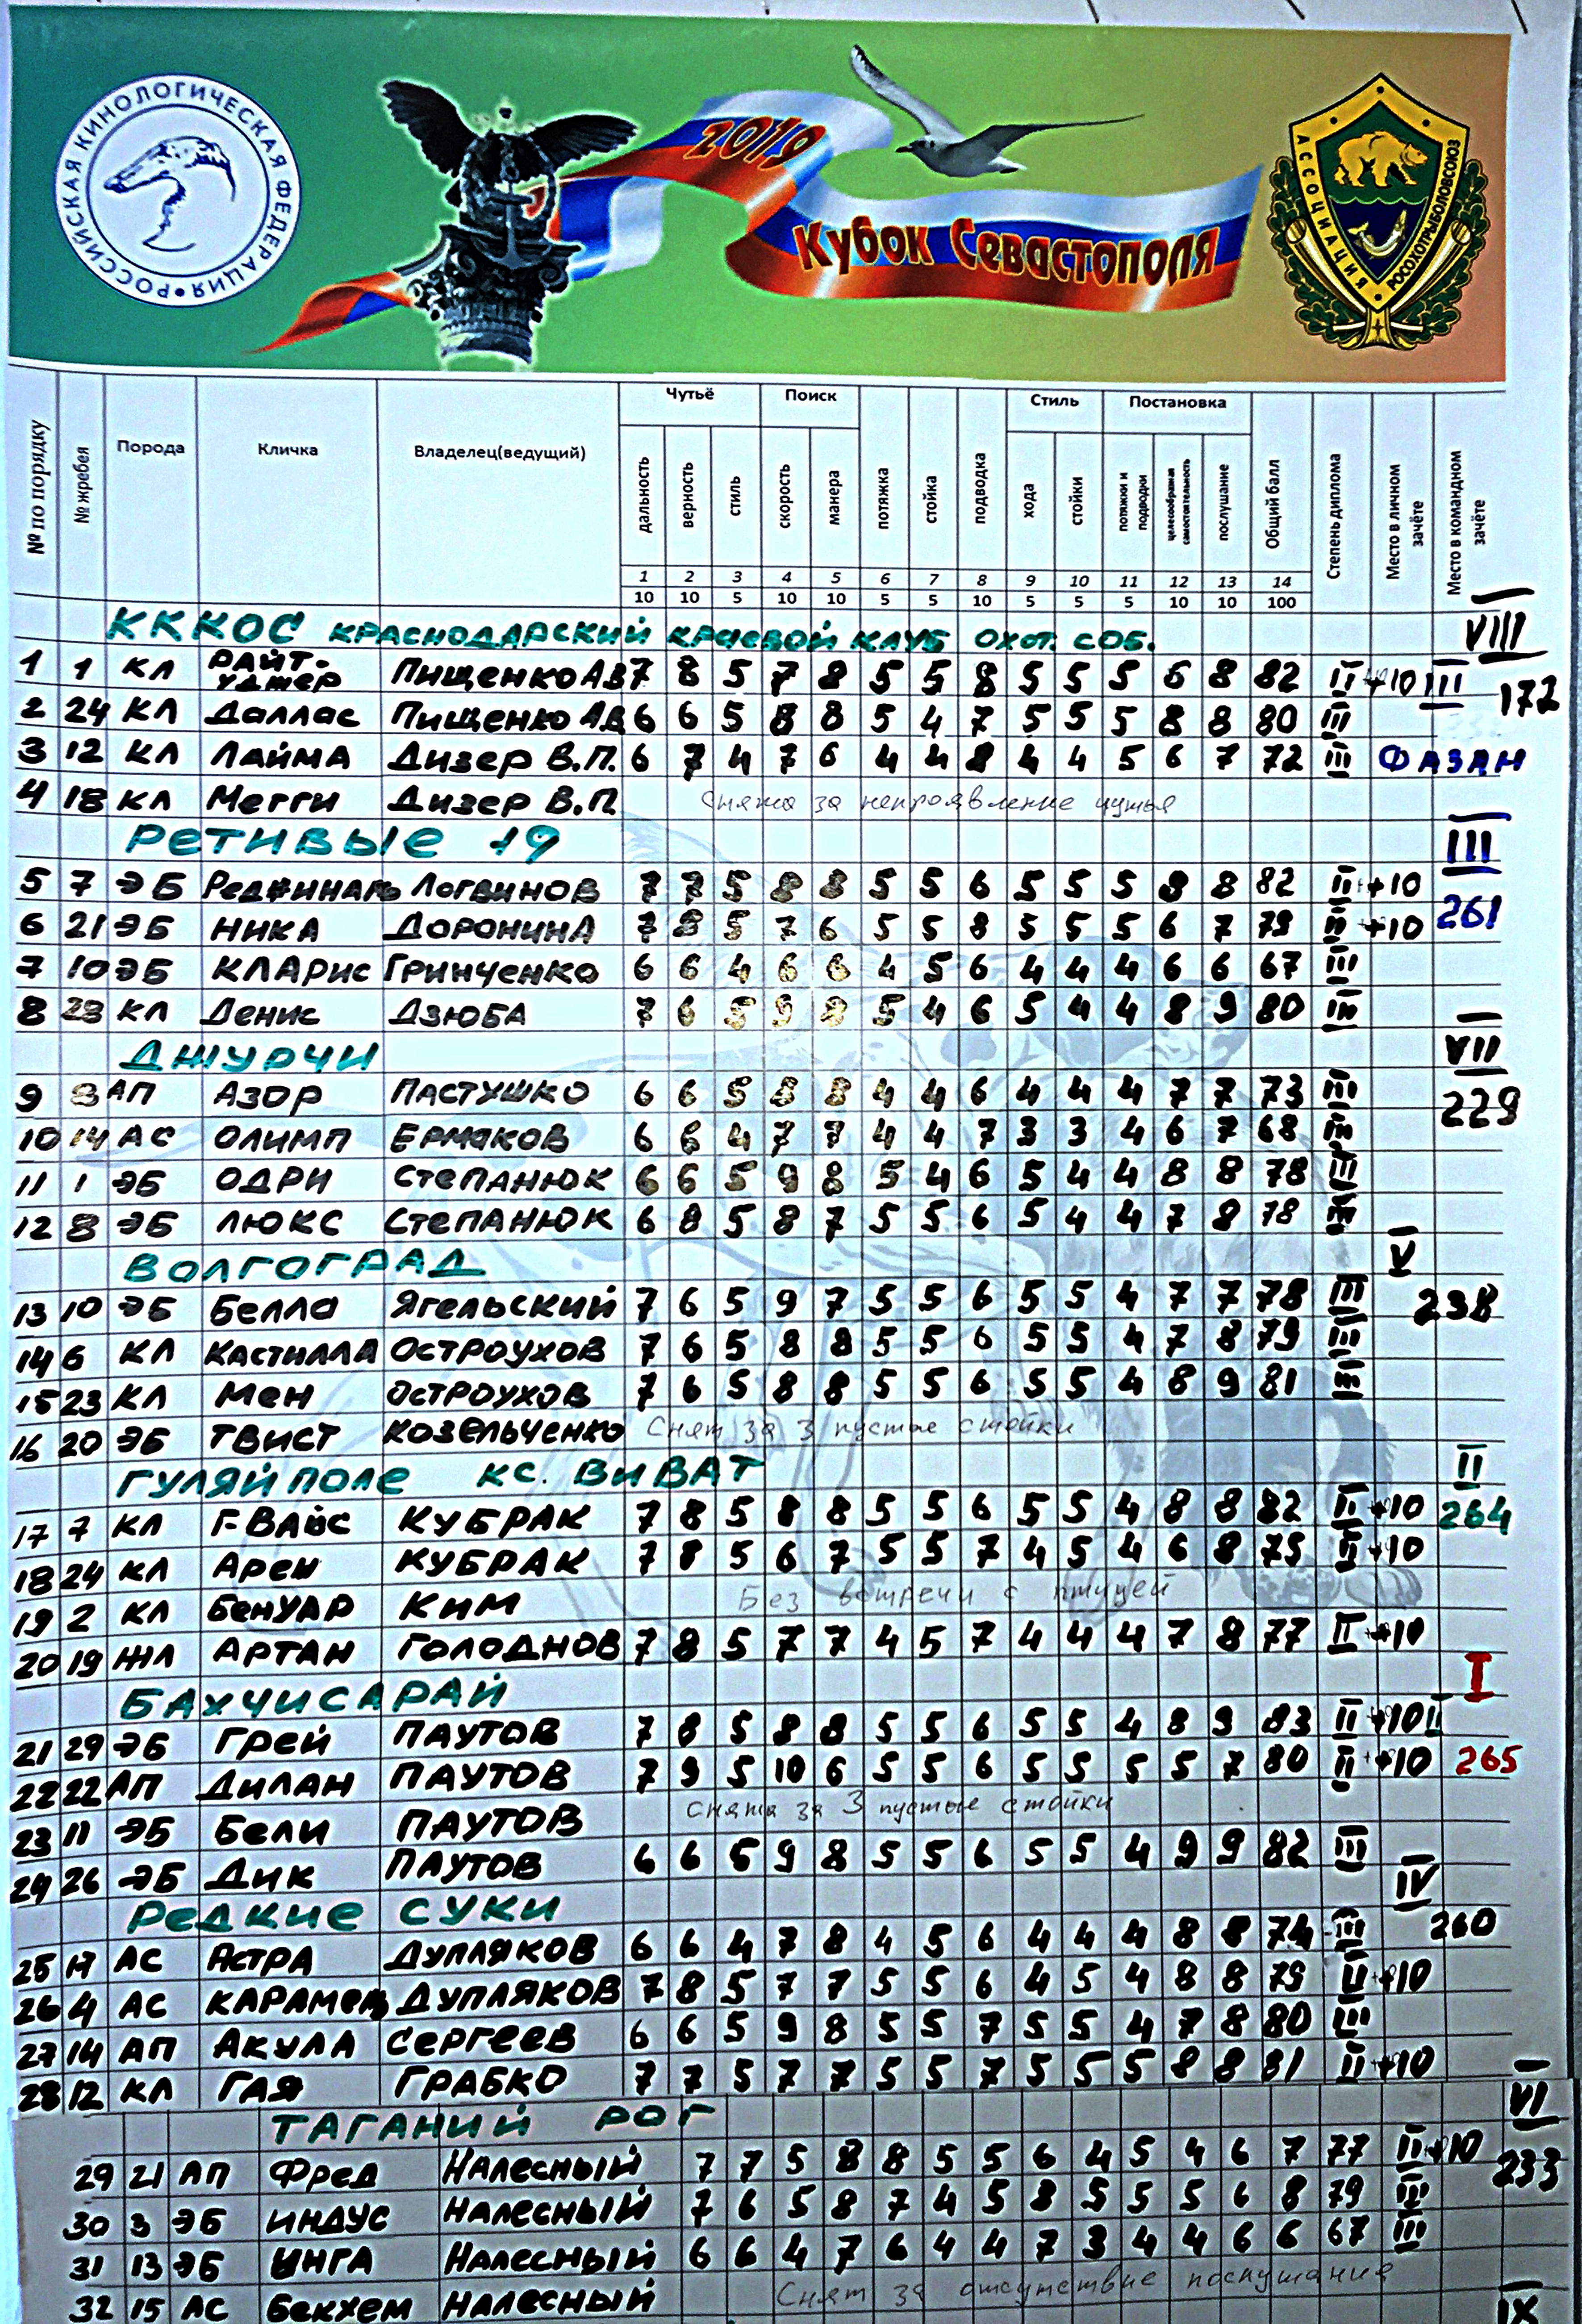 РОССИЙСКАЯ КИНОЛОГИЧЕСКАЯ ФЕДЕРАЦИЯ
2019
Кубок Севастополя
АССОЦИАЦИЯ РОСОХОТРЫБОЛОВСОЮЗ
№ по порядку № жребея Порода Кличка Владелец(ведущий) Чутьё Поиск Стиль Постановка
дальность верность стиль скорость манера потяжка стойка подводка хода стойки потяжки и подводки целесообразная самостоятельность послушание Общий балл Степень диплома Место в личном зачёте Место в командном зачёте
1 2 3 4 5 6 7 8 9 10 11 12 13 14
10 10 5 10 10 5 5 10 5 5 5 10 10 100
КККОС КРАСНОДАРСКИЙ КРАЕВОЙ КЛУБ ОХОТ. СОБ. VIII
1 1 КЛ РАЙТ- Пищенко АВ 7 8 5 7 8 5 5 8 5 5 5 6 8 82 II +10 III 172
2 24 КЛ Даллас Пищенко АВ 6 6 5 8 8 5 4 7 5 5 5 8 8 80 III
3 12 КЛ ЛАЙМА Дизер В.П. 6 7 4 7 6 4 4 8 4 4 5 6 7 72 III ФАЗАН
4 18 КЛ Мегги Дизер В.П Снята за непроявление чутья
РЕТИВЫЕ 19 III
5 7 ЭБ Реджиналь Логвинов 7 7 5 8 8 5 5 6 5 5 5 8 8 82 II +10
6 21 ЭБ НИКА ДОРОНИНА 7 8 5 7 6 5 5 8 5 5 5 6 7 79 II +10 261
7 10 ЭБ КЛАРИС ГРИНЧЕНКО 6 6 4 6 6 4 5 6 4 4 4 6 6 67 III
8 23 КЛ Денис ДЗЮБА 7 6 5 9 8 5 4 6 5 4 4 8 9 80 III
ДЖУРЧИ VII
9 8 АП АЗОР ПАСТУШКО 6 6 5 8 8 4 4 6 4 4 4 7 7 73 III 229
10 14 АС ОЛИМП ЕРМАКОВ 6 6 4 7 7 4 4 7 3 3 4 6 7 68 III
11 1 ЭБ ОДРИ СТЕПАНЮК 6 6 5 9 8 5 4 6 5 4 4 8 8 78 III
12 8 ЭБ ЛЮКС СТЕПАНЮК 6 8 5 8 7 5 5 6 5 4 4 7 8 78 III
ВОЛГОГРАД V
13 10 ЭБ Белла Ягельский 7 6 5 9 7 5 5 6 5 5 4 7 7 78 III 238
14 6 КЛ КАСТИЛЛА ОСТРОУХОВ 7 6 5 8 8 5 5 6 5 5 4 7 8 79 III
15 23 КЛ МЕН ОСТРОУХОВ 7 6 5 8 8 5 5 6 5 5 4 8 9 81 III
16 20 ЭБ ТВИСТ КОЗЕЛЬЧЕНКО Снят за 3 пустые стойки
ГУЛЯЙ ПОЛЕ КС. ВИВАТ II
17 7 КЛ Г-ВАЙС КУБРАК 7 8 5 8 8 5 5 6 5 5 4 8 8 82 II +10 264
18 24 КЛ Арен КУБРАК 7 8 5 6 7 5 5 7 4 5 4 6 8 75 II +10
19 2 КЛ БЕНУАР КИМ Без встречи с птицей
20 19 ЖЛ АРТАН ГОЛОДНОВ 7 8 5 7 7 4 5 7 4 4 4 7 8 77 II +10
БАХЧИСАРАЙ I
21 29 ЭБ Грей ПАУТОВ 7 8 5 8 8 5 5 6 5 5 4 8 9 83 II +10 II
22 22 АП Дилан ПАУТОВ 7 9 5 10 6 5 5 6 5 5 5 5 7 80 II +10 265
23 11 ЭБ Бели ПАУТОВ Снята за 3 пустые стойки
24 26 ЭБ Дик ПАУТОВ 6 6 5 9 8 5 5 6 5 5 4 9 9 82 III
РЕДКИЕ СУКИ IV
25 17 АС АСТРА ДУПЛЯКОВ 6 6 4 7 8 4 5 6 4 4 4 8 8 74 III 260
26 4 АС КАРАМЕЛЬ ДУПЛЯКОВ 7 8 5 7 7 5 5 6 4 5 4 8 8 79 II +10
27 14 АП АКУЛА СЕРГЕЕВ 6 6 5 9 8 5 5 7 5 5 4 7 8 80 III
28 12 КЛ ГАЯ ГРАБКО 7 7 5 7 7 5 5 7 5 5 5 8 8 81 II +10
ТАГАНИЙ РОГ VI
29 21 АП Фред Налесный 7 7 5 8 8 5 5 6 4 5 4 6 7 77 II +10 233
30 3 ЭБ ИНДУС Налесный 7 6 5 8 7 4 5 8 5 5 5 6 8 79 III
31 13 ЭБ ИНГА Налесный 6 6 4 7 6 4 4 7 3 4 4 6 6 67 III
32 15 АС Бекхем Налесный Снят за отсутствие послушания
IX